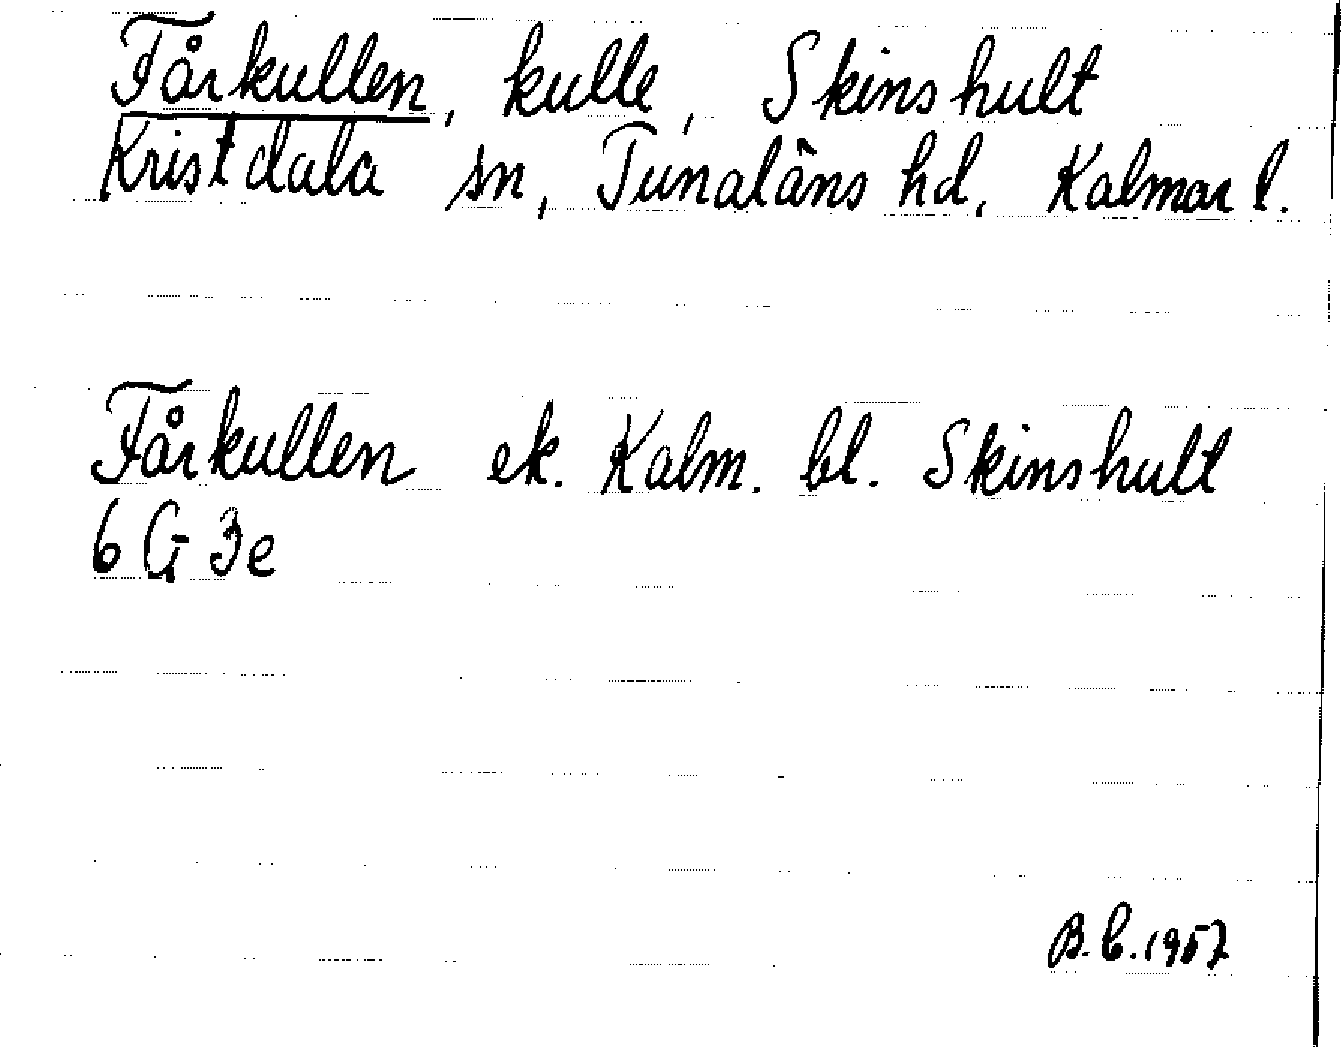 Fårkullen, kulle, Skinshult
Kristdala sn, Tunaläns hd, Kalmar l.
Fårkullen ek. Kalm. bl. Skinshult
6 G 3e
B.C. 1957